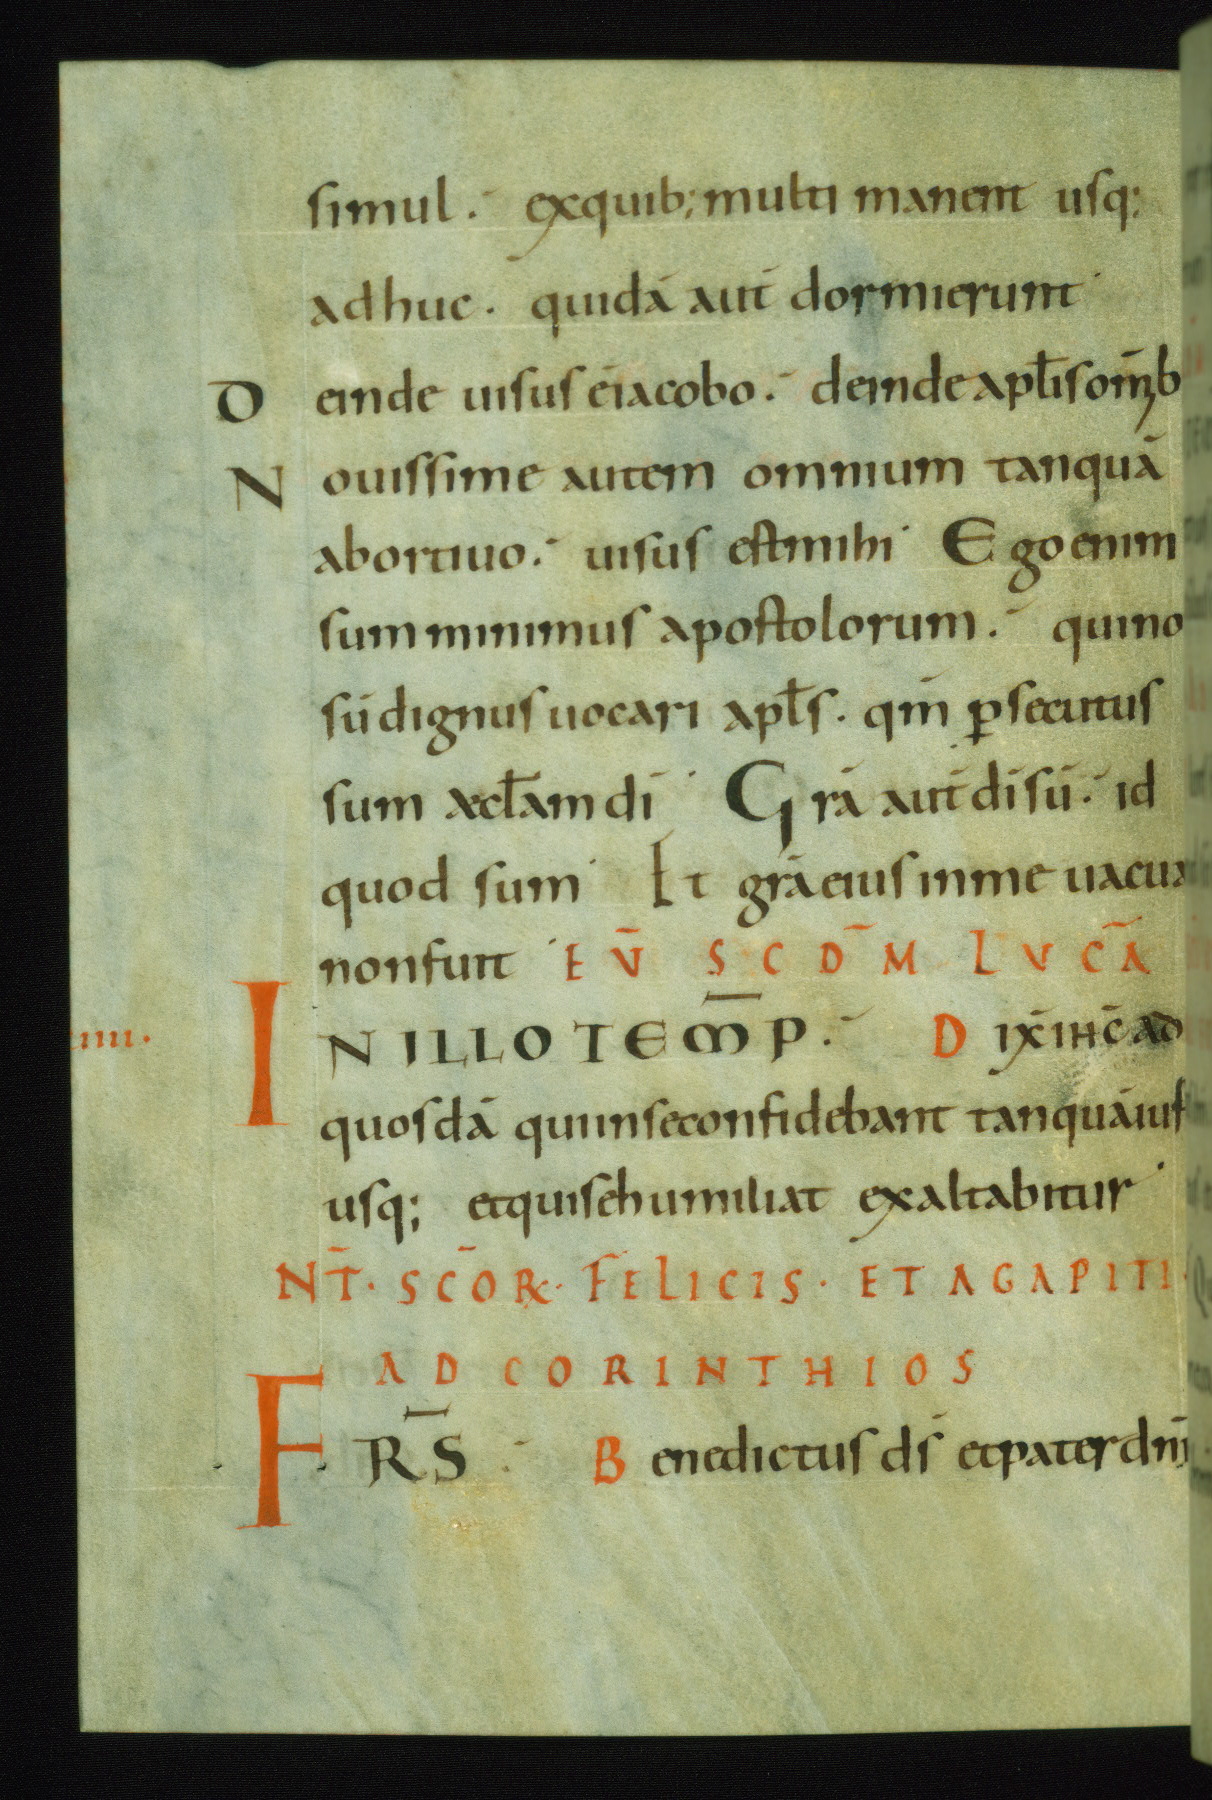 simul. exquib; multi manent usq;
adhuc. quidā aut̄ dormierunt
Deinde uisus ē iacobo. deinde apl̄is om̄ib
Nouissime autem omnium tanquā
abortiuo. uisus est mihi Ego enim
sum minimus apostolorum. qui no
sū dignus uocari apl̄s. qm̄ ꝑsecutus
sum æcl̄am dī Grā aut̄ dī sū. id
quod sum Et grā eius in me uacua
non fuit EV̄ SCDM̄ LVCĀ
IN ILLO TEM̄P. DIX̄ IHC̄ AD
IIII.
quosdā qui in se confidebant tanquā iuſ
usq; et qui se humiliat exaltabitur
NT̄. SC̄OR. FELICIS. ET AGAPITI.
AD CORINTHIOS
FRS̄ Benedictus ds̄ et pater dn̄i